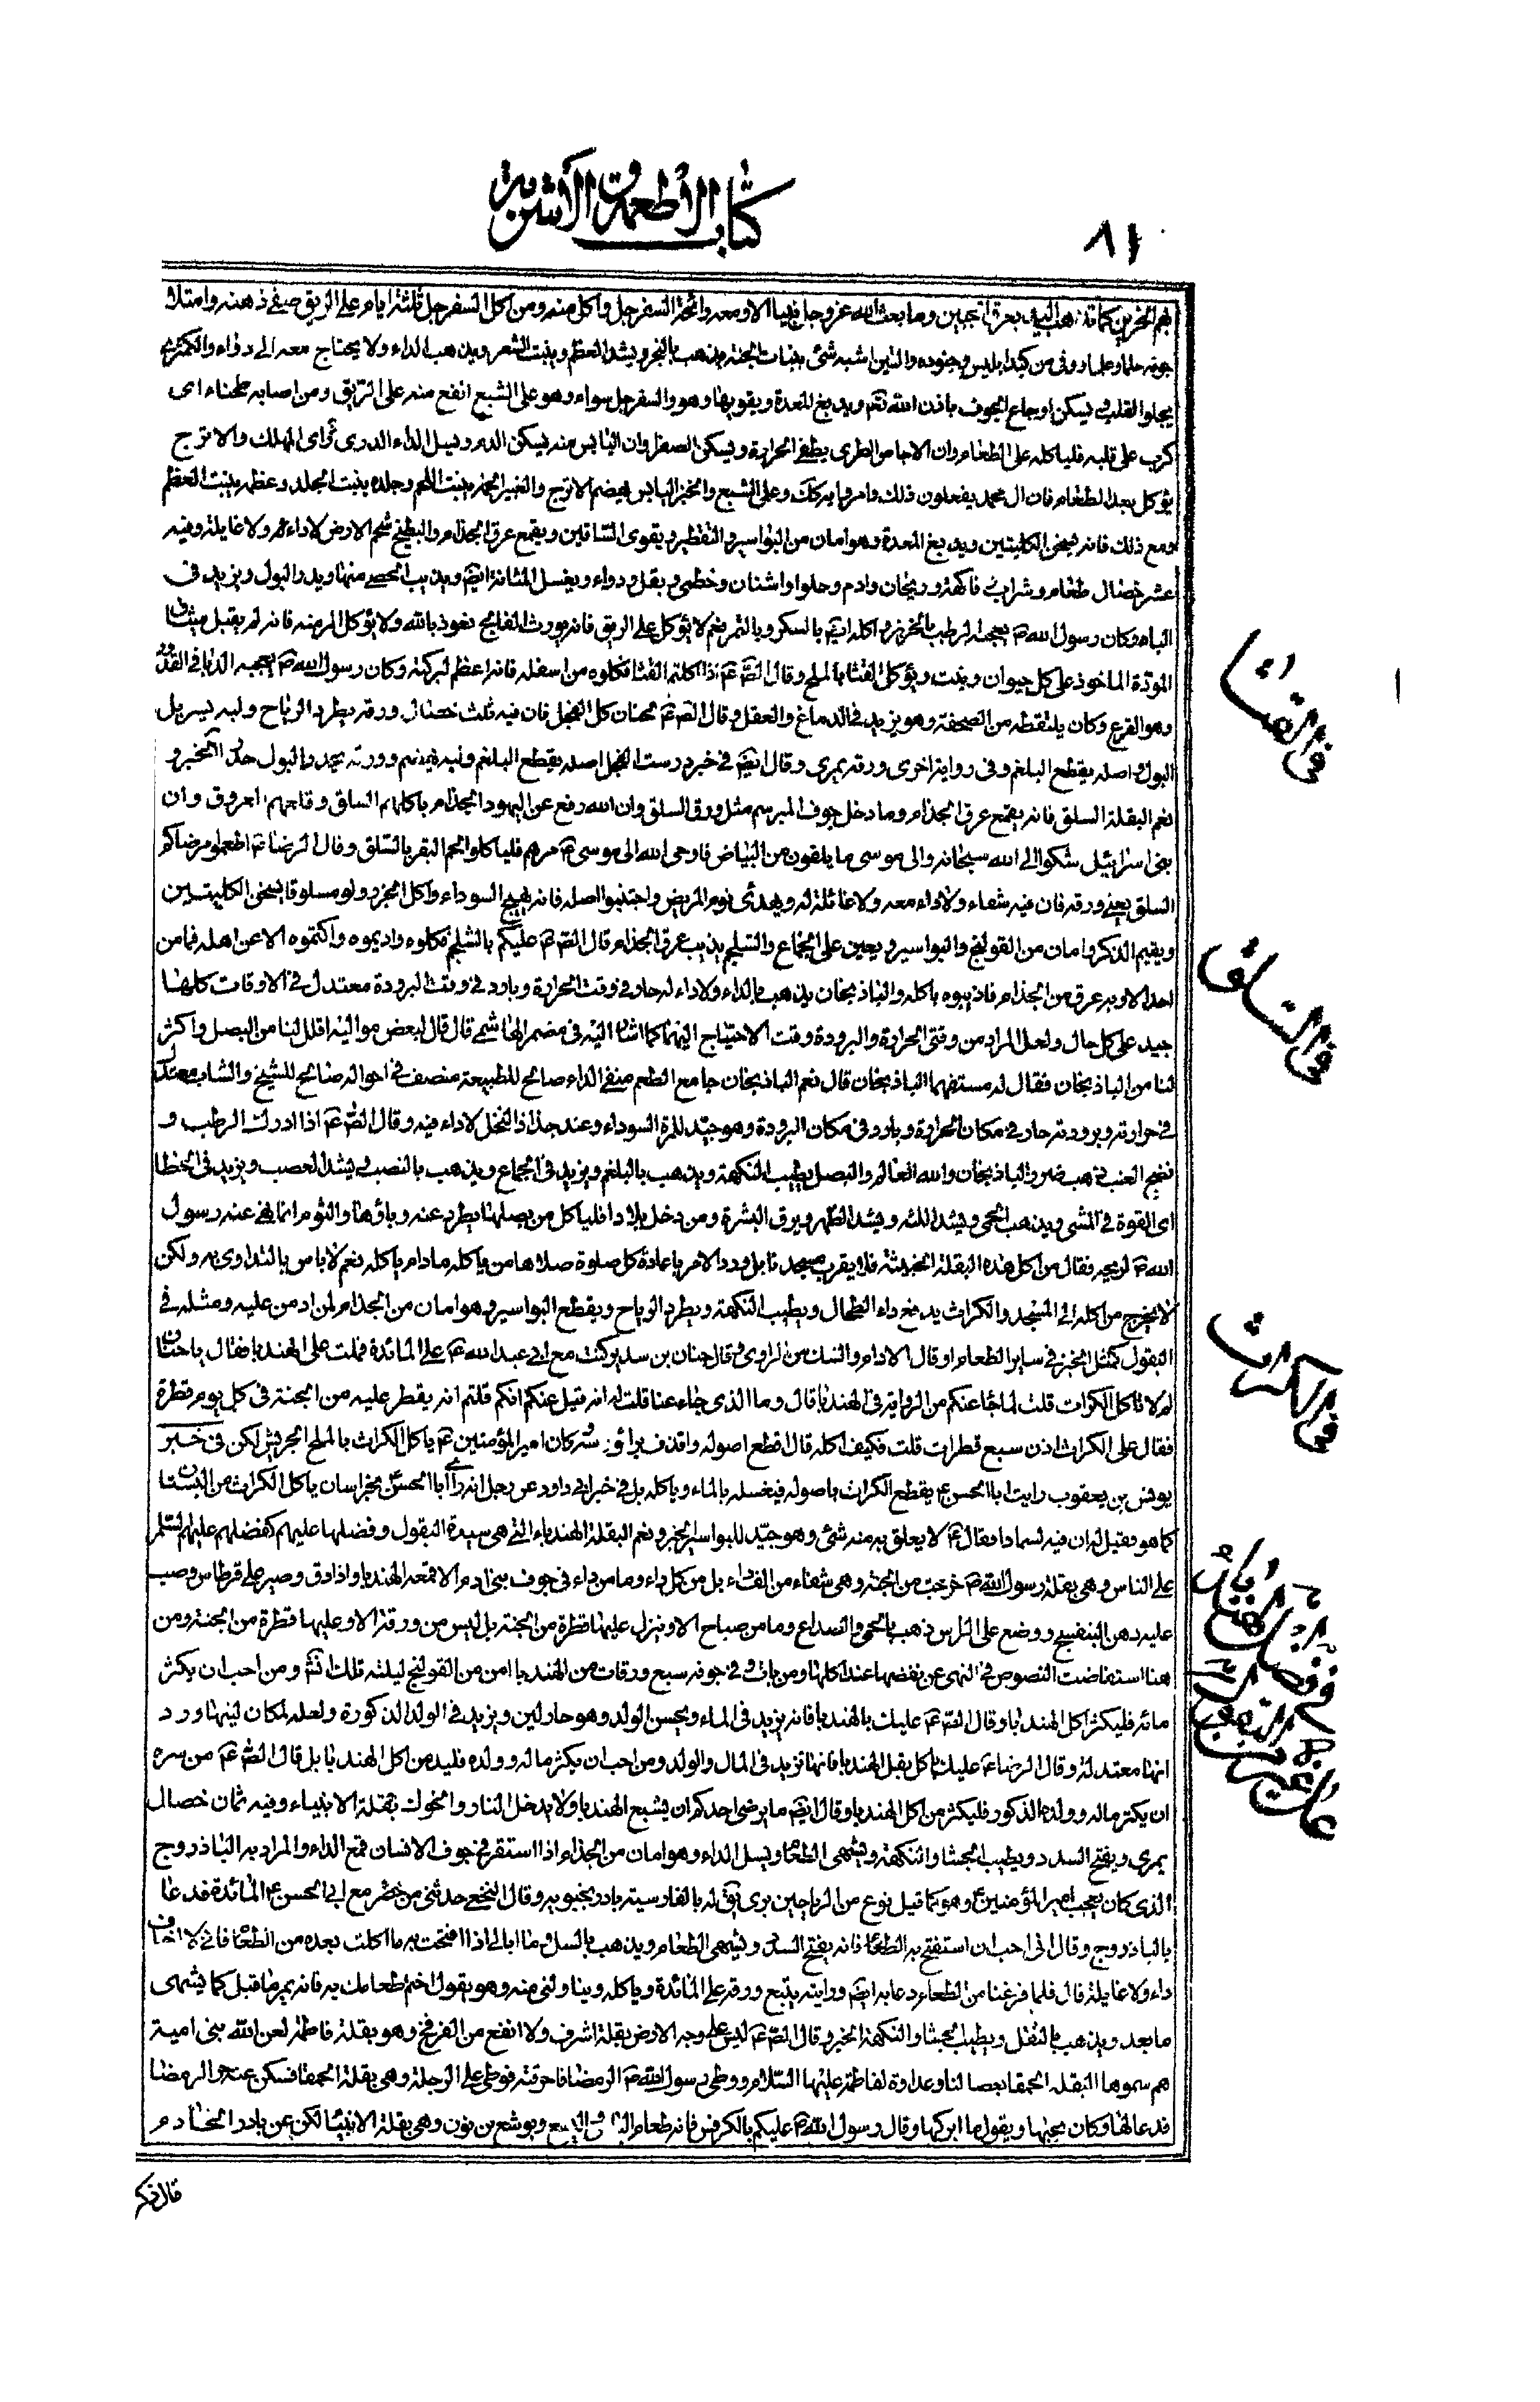 كتاب الأطعمة والأشربة
٨١
بهم الحزين كما تذهب اليد بعرق الجبين وما بعث الله عز وجل نبيا الا ومعه رائحة السفرجل واكل منه ومن اكل السفرجل ثلثة ايام على الريق صفى ذهنه وامتلا
جوفه حلما وعلما ووقى من كيد ابليس وجنوده والتين اشبه شئ بنبات الجنة يذهب بالبخر ويشد العظم وينبت الشعر ويذهب الداء ولا يحتاج معه الى دواء والكمثرى
يجلوا القلب ويسكن اوجاع الجوف باذن الله تعم ويدبغ المعدة ويقويها وهو والسفرجل سواء وهو على الشبع انفع منه على الريق ومن اصابه طخاء اى
كرب على قلبه فلياكله على الطعام وان الاجاص الطرى يطفئ الحرارة ويسكن الصفرا وان اليابس منه يسكن الدم ويسل الداء الدوى اى المهلك والاترج
يؤكل بعد الطعام فان ال محمد يفعلون ذلك وامروا به كك وعلى الشبع والخبز اليابس يهضم الاترج والغبيرا لحمه ينبت اللحم وجلده ينبت الجلد وعظمه ينبت العظم
ومع ذلك فانه يسخن الكليتين ويدبغ المعدة وهو امان من البواسير والتقطير ويقوى الساقين ويقمع عرق الجذام والبطيخ شحم الارض لا داء فيه ولا غايلة وفيه
عشر خصال طعام وشراب فاكهة وريحان وادم وحلوا واشنان وخطمى وبقل ودواء ويغسل المثانة ايضم ويذيب الحصى منها ويدر البول ويزيد فى
الباه وكان رسول الله ص يعجبه الرطب بالخربز واكله ايضم بالسكر وبالتمر نعم لا يؤكل على الريق فانه يورث الفالج نعوذ بالله ولا يؤكل المر منه فانه لم يقبل ميثاق
المودة الماخوذ على كل حيوان ونبت ويؤكل القثا بالملح وقال الصم ع اذا اكلتم القثا فكلوه من اسفله فانه اعظم لبركته وكان رسول الله ص يعجبه الدبا فى القدور
وهو القرع وكان يلتقطه من الصحفة وهو يزيد فى الدماغ والعقل وقال الصم ع لحنان كل الفجل فان فيه ثلث خصال ورقه يطرد الرياح ولبه يسربل
البول واصله يقطع البلغم وفى رواية اخرى ورقه يمرى وقال ايضم فى خبر درست الفجل اصله يقطع البلغم ولبه يهضم وورقه يحدر البول حدرا الخبر و
نعم البقلة السلق فانه يقمع عرق الجذام وما دخل جوف المبرسم مثل ورق السلق وان الله رفع عن اليهود الجذام باكلهم السلق وقلعهم العروق وان
بنى اسرائيل شكوا الى الله سبحانه والى موسى ما يلقون من البياض فاوحى الله الى موسى ص مرهم فلياكلوا لحم البقر بالسلق وقال الرضا ع اطعموا مرضاكم
السلق يعنى ورقه فان فيه شفاء ولا داء معه ولا غائلة له ويهدئ نوم المريض واجتنبوا اصله فانه يهيج السوداء واكل الجزر ولو مسلوقا يسخن الكليتين
ويقيم الذكر وامان من القولنج والبواسير ويعين على الجماع والشلجم يذيب عرق الجذام قال الصم ع عليكم بالشلجم فكلوه واديموه واكتموه الا عن اهله فما من
احد الا وبه عرق من الجذام فاذيبوه باكله والباذنجان يذهب بالداء ولا داء له حار فى وقت الحرارة وبارد فى وقت البرودة معتدل فى الاوقات كلها
جيد على كل حال ولعل المراد من وقتى الحرارة والبرودة وقت الاحتياج اليهما كما اشار اليه فى مضمر الهاشمى قال قال لبعض مواليه اقلل لنا من البصل واكثر
لنا من الباذنجان فقال له مستفهما الباذنجان قال نعم الباذنجان جامع الطعم منفى الداء صالح للطبيعة منصف فى احواله صالح للشيخ والشاب معتدل
فى حرارته وبرودته حار فى مكان الحرارة وبارد فى مكان البرودة وهو جيد للمرة السوداء وعند جذاذ النخل لا داء فيه وقال الصم ع اذا ادرك الرطب و
نضج العنب ذهب ضرر الباذنجان والله العالم والبصل يطيب النكهة ويذهب بالبلغم ويزيد فى الجماع ويذهب بالنصب ويشد العصب ويزيد فى الخطا
اى القوة فى المشى ويذهب الحمى ويشد اللثة ويشد الظهر ويرق البشرة ومن دخل بلادا فلياكل من بصلها يطرد عنه وباؤها والثوم انما نهى عنه رسول
الله ص لريحه فقال من اكل هذه البقلة الخبيثة فلا يقرب مسجدنا بل ورد الامر باعادة كل صلوة صلاها من ياكله مادام ياكله نعم لا باس بالتداوى به ولكن
لا يخرج من اكله الى المسجد والكراث يدفع داء الطحال ويطيب النكهة ويطرد الرياح ويقطع البواسير وهو امان من الجذام لمن ادمن عليه ومثله فى
البقول كمثل الخبز فى ساير الطعام او قال الادام والشك من الراوى وقال حنان بن سدير كنت مع ابى عبد الله ع على المائدة فملت على الهندبا فقال يا حنان
لم لا تاكل الكراث قلت لما جاء عنكم من الرواية فى الهندبا قال وما الذى جاء عنا قلت له انه قيل عنكم انكم قلتم انه يقطر عليه من الجنة فى كل يوم قطرة
فقال على الكراث اذن سبع قطرات قلت فكيف اكله قال اقطع اصوله واقذف برؤسه وكان امير المؤمنين ع ياكل الكراث بالملح الجريش لكن فى خبر
يونس بن يعقوب رايت ابا الحسن ع يقطع الكراث باصوله فيغسله بالماء وياكله بل فى خبر ابى داود عن رجل انه راى ابا الحسن ع بخراسان ياكل الكراث من البستان
كما هو فقيل له ان فيه لسمادا فقال ع لا يعلق به منه شئ وهو جيد للبواسير الخبر ونعم البقلة الهندباء التى هى سيدة البقول وفضلها عليهم كفضلهم عليهم السلم
على الناس وهى بقلة رسول الله ص خرجت من الجنة وهى شفاء من الف داء بل من كل داء وما من داء فى جوف بنى ادم الا قمعه الهندبا واذا دق وصير على قرطاس وصب
عليه دهن البنفسج ووضع على الراس ذهب بالحمى والصداع وما من صباح الا وينزل عليها قطرة من الجنة بل ليس من ورقة الا وعليها قطرة من الجنة ومن
هنا استفاضت النصوص فى النهى عن نفضها عند اكلها ومن بات وفى جوفه سبع ورقات من الهندبا امن من القولنج ليلته تلك انشم ومن احب ان يكثر
مائه فليكثر اكل الهندبا وقال الصم ع عليك بالهندبا فانه يزيد فى الماء ويحسن الولد وهو حار لين ويزيد فى الولد الذكورة ولعله لمكان لينها ورد
انها معتدلة وقال الرضا ع عليك باكل بقل الهندبا فانها تزيد فى المال والولد ومن احب ان يكثر ماله وولده فليدمن اكل الهندبا بل قال الصم ع من سره
ان يكثر ماله وولده الذكور فليكثر من اكل الهندبا وقال ايضم ما يرضى احدكم ان يشبع الهندبا ولا يدخل النار والحوك بقلة الانبياء وفيه ثمان خصال
يمرى ويفتح السدد ويطيب الجشا والنكهة ويشهى الطعام ويسل الداء وهو امان من الجذام اذا استقر فى جوف الانسان قمع الداء والمراد به الباذروج
الذى كان يعجب امير المؤمنين ع وهو كما قيل نوع من الرياحين برى يق له بالفارسية بادرنجبويه وقال النخعى حدثنى من حضر مع ابى الحسن ع المائدة فدعا
بالباذروج وقال انى احب ان استفتح به الطعام فانه يفتح السدد ويشهى الطعام ويذهب بالسل وما ابالى اذا افتتحت به ما اكلت بعده من الطعام فانى لا اخاف
داء ولا غايلة قال فلما فرغنا من الطعام دعا به ايضم ورايته يتتبع ورقه على المائدة وياكله ويناولنى منه وهو يقول اختم طعامك به فانه يمرئ ما قبل كما يشهى
ما بعد ويذهب بالثقل ويطيب الجشا والنكهة الخبر وقال الصم ع ليس على وجه الارض بقلة اشرف ولا انفع من الفرفخ وهو بقلة فاطمة لعن الله بنى امية
هم سموها البقلة الحمقا بغضا لنا وعداوة لفاطمة عليها السلام ووطى رسول الله ص الرمضا فاحرقته فوطى على الرجلة وهى بقلة الحمقا فسكن عنه حر الرمضا
فدعا لها وكان يحبها ويقول ما ابركها وقال رسول الله ص عليكم بالكرفس فانه طعام الياس واليسع ويوشع بن نون وهى بقلة الانبيا لكن عن نادر الخادم
قال ذكر
فى القثاء
فى السلق
فى الكراث
فى فضل الهندباء